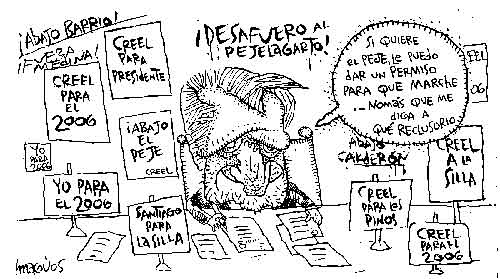 ¡ABAJO BARRIO!
FUERA
¡F MEDINA!
CREEL
PARA
EL
2006
CREEL
PARA
PRESIDENTE
¡DESAFUERO AL
PEJELAGARTO!
SI QUIERE
EL PEJE, LE PUEDO
DAR UN PERMISO
PARA QUE MARCHE
... NOMÁS QUE ME
DIGA A
QUÉ RECLUSORIO
EEL
06
YO
PARA
2006
¡ABAJO
EL
PEJE
CREEL
YO PARA
EL 2006
SANTIAGO
PARA
LA SILLA
ABAJO
CALDERÓN
CREEL
A LA
SILLA
CREEL
PARA LOS
PINOS
CREEL
PARA EL
2006